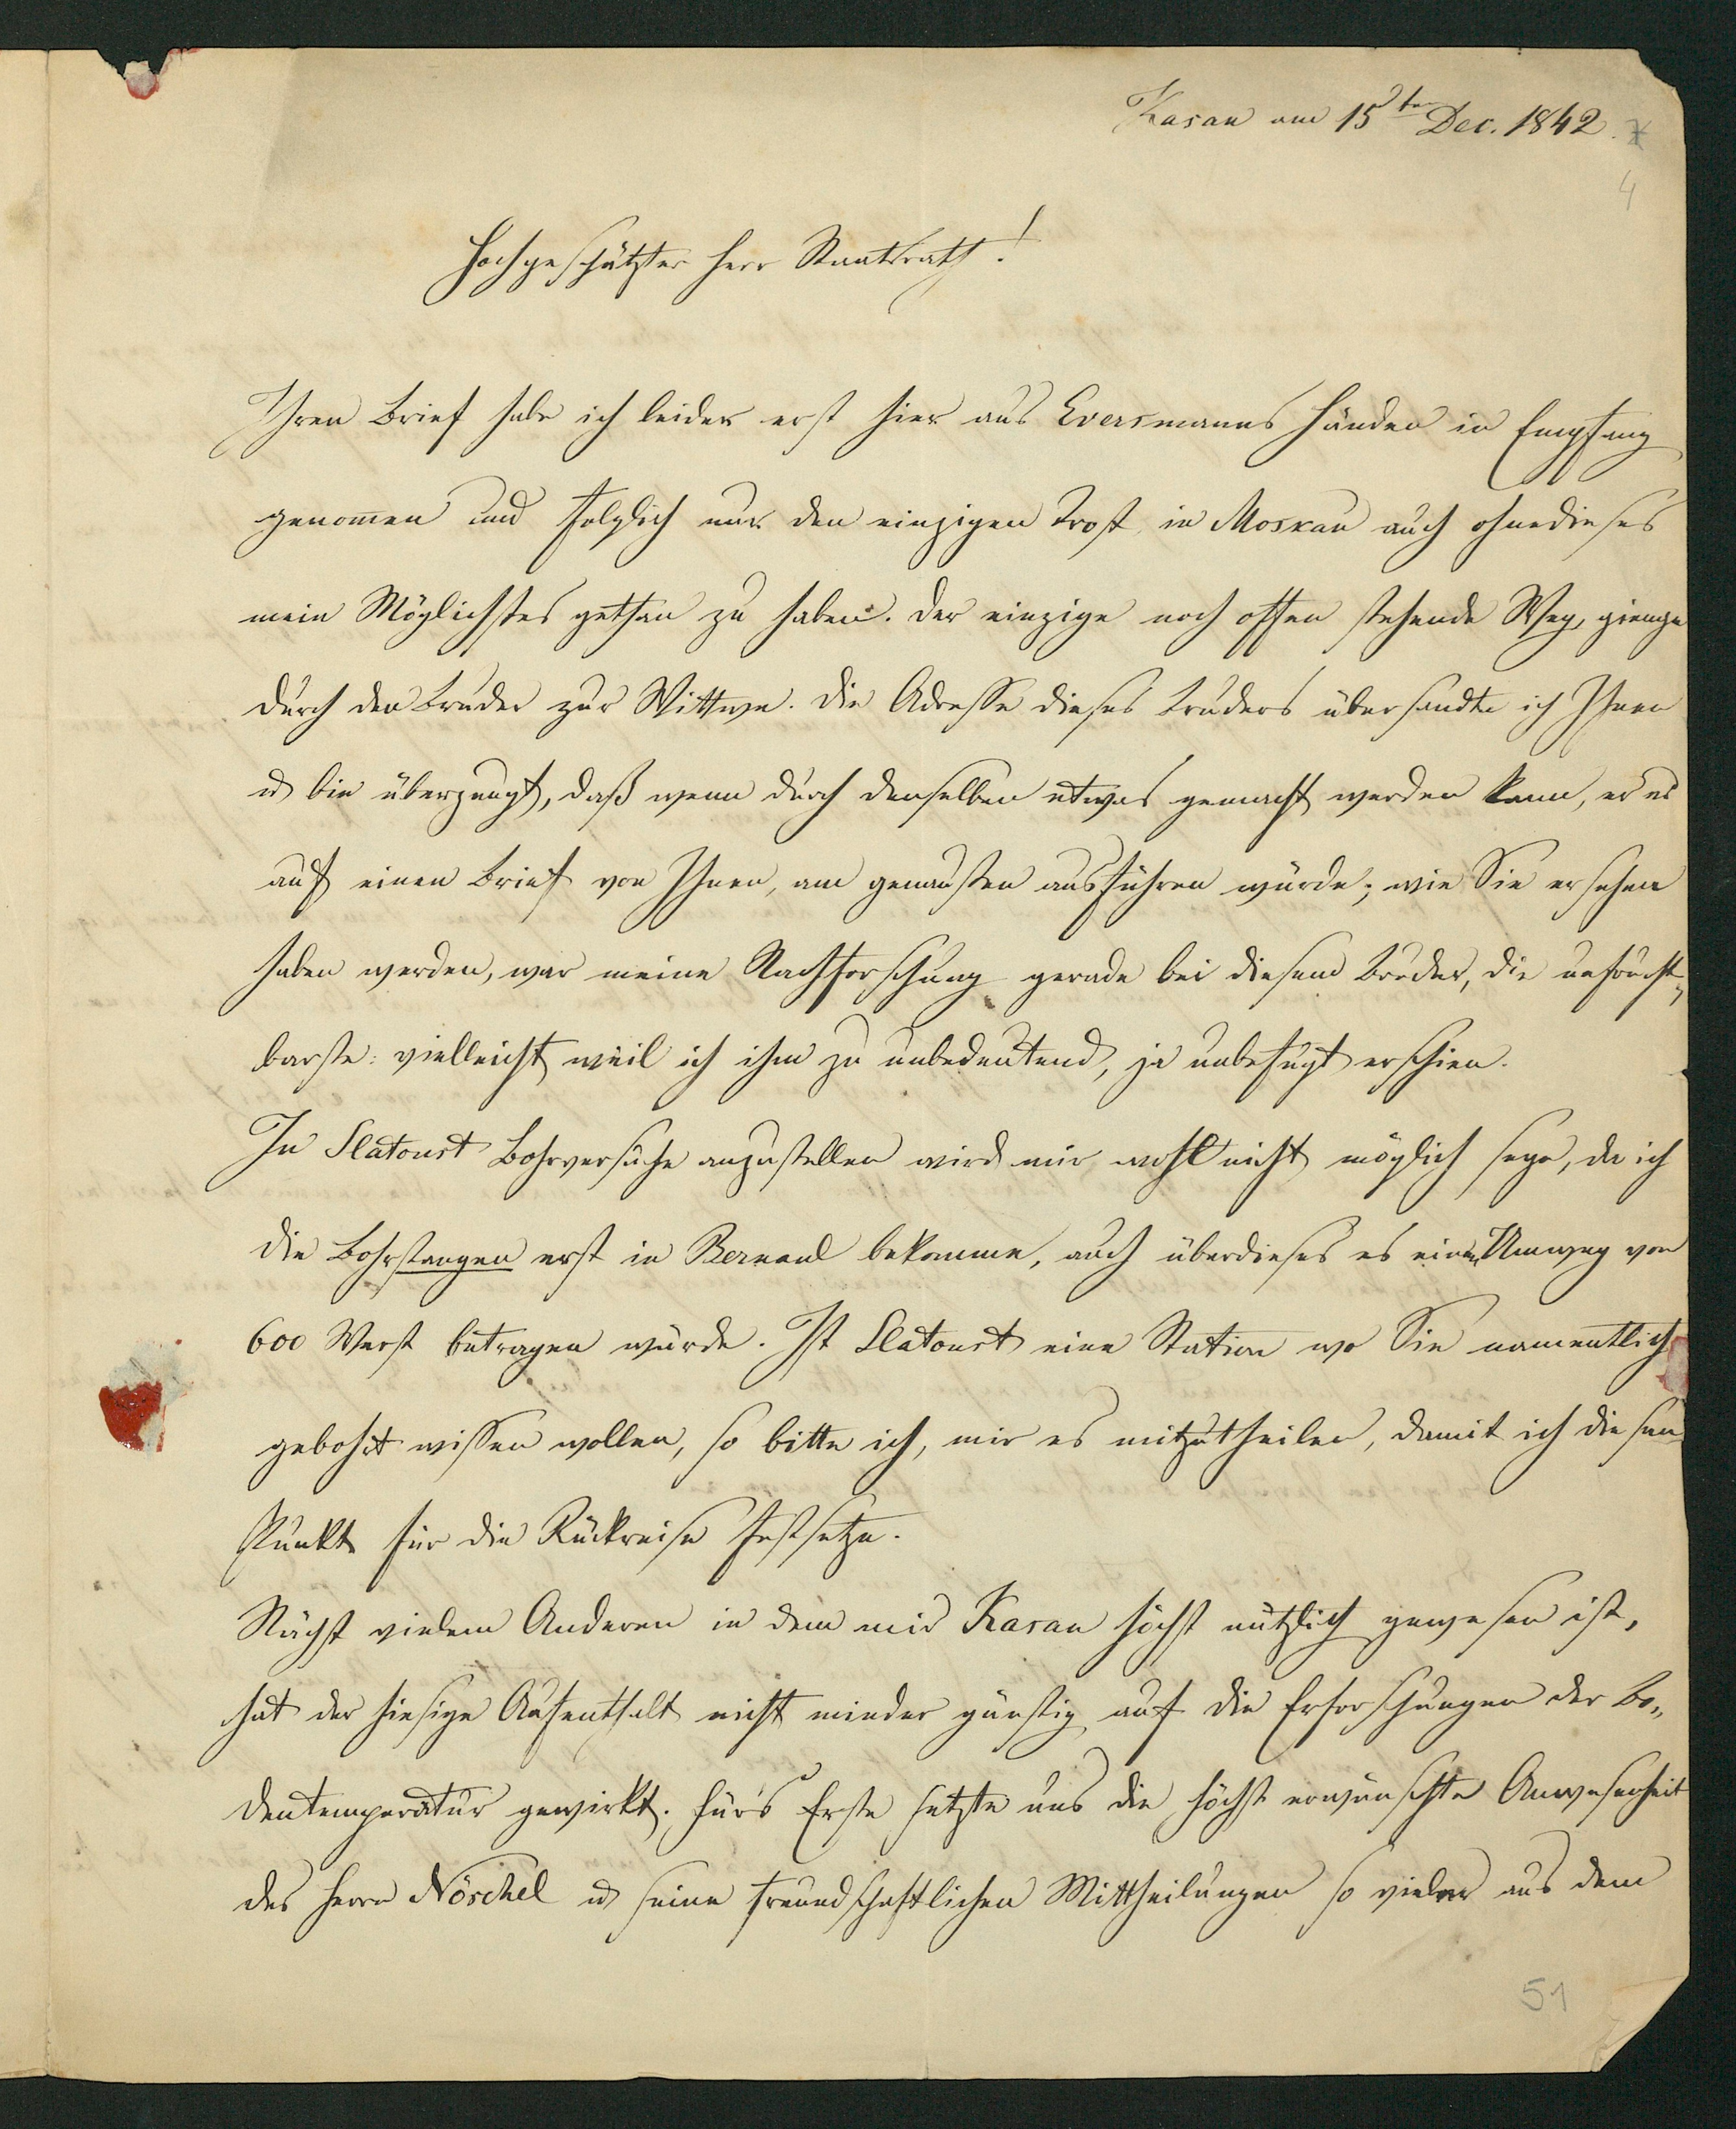 Kasan am 15ten Dec. 1842.
4
Hochgeschätzter Herr Staatsrath!
Ihren Brief habe ich leider erst hier aus Eversmanns Händen in Empfang
genom̄en und folglich nur den einzigen Trost in Moskau auch ohnedieses
mein Möglichstes gethan zu haben. Der einzige noch offen stehende Weg, gienge
durch den Bruder zur Wittwe. Die Adresse dieses Bruders übersandte ich Ihnen
u bin überzeugt, daß wenn durch denselben etwas gemacht werden kann, er es
auf einen Brief von Ihnen, am genausten ausführen würde; wie Sie ersehen
haben werden, war meine Nachforschung gerade bei diesem Bruder, die unfrucht-
barste: vielleicht weil ich ihm zu unbedeutend, ja unbefugt erschien.
In Slatoust Bohrversuche anzustellen wird mir wohl nicht möglich seyn, da ich
die Bohrstangen erst in Bernaul bekomme, auch überdieses es einen Umweg von
600 Werst betragen würde. Ist Slatoust eine Station wo Sie namentlich
gebohrt wissen wollen, so bitte ich, mir es mitzutheilen, damit ich diesen
Punkt für die Rückreise festsetze.
Nächst vielem Anderen in dem mir Kasan höchst nützlich gewesen ist,
hat der hiesige Aufenthalt nicht minder günstig auf die Erforschungen der Bo„
dentemperatur gewirkt. Für's Erste setzte uns die höchst erwünschte Anwesenheit
des Herrn Nöschel u seine freundschaftlichen Mittheilungen so vieler aus dem
51